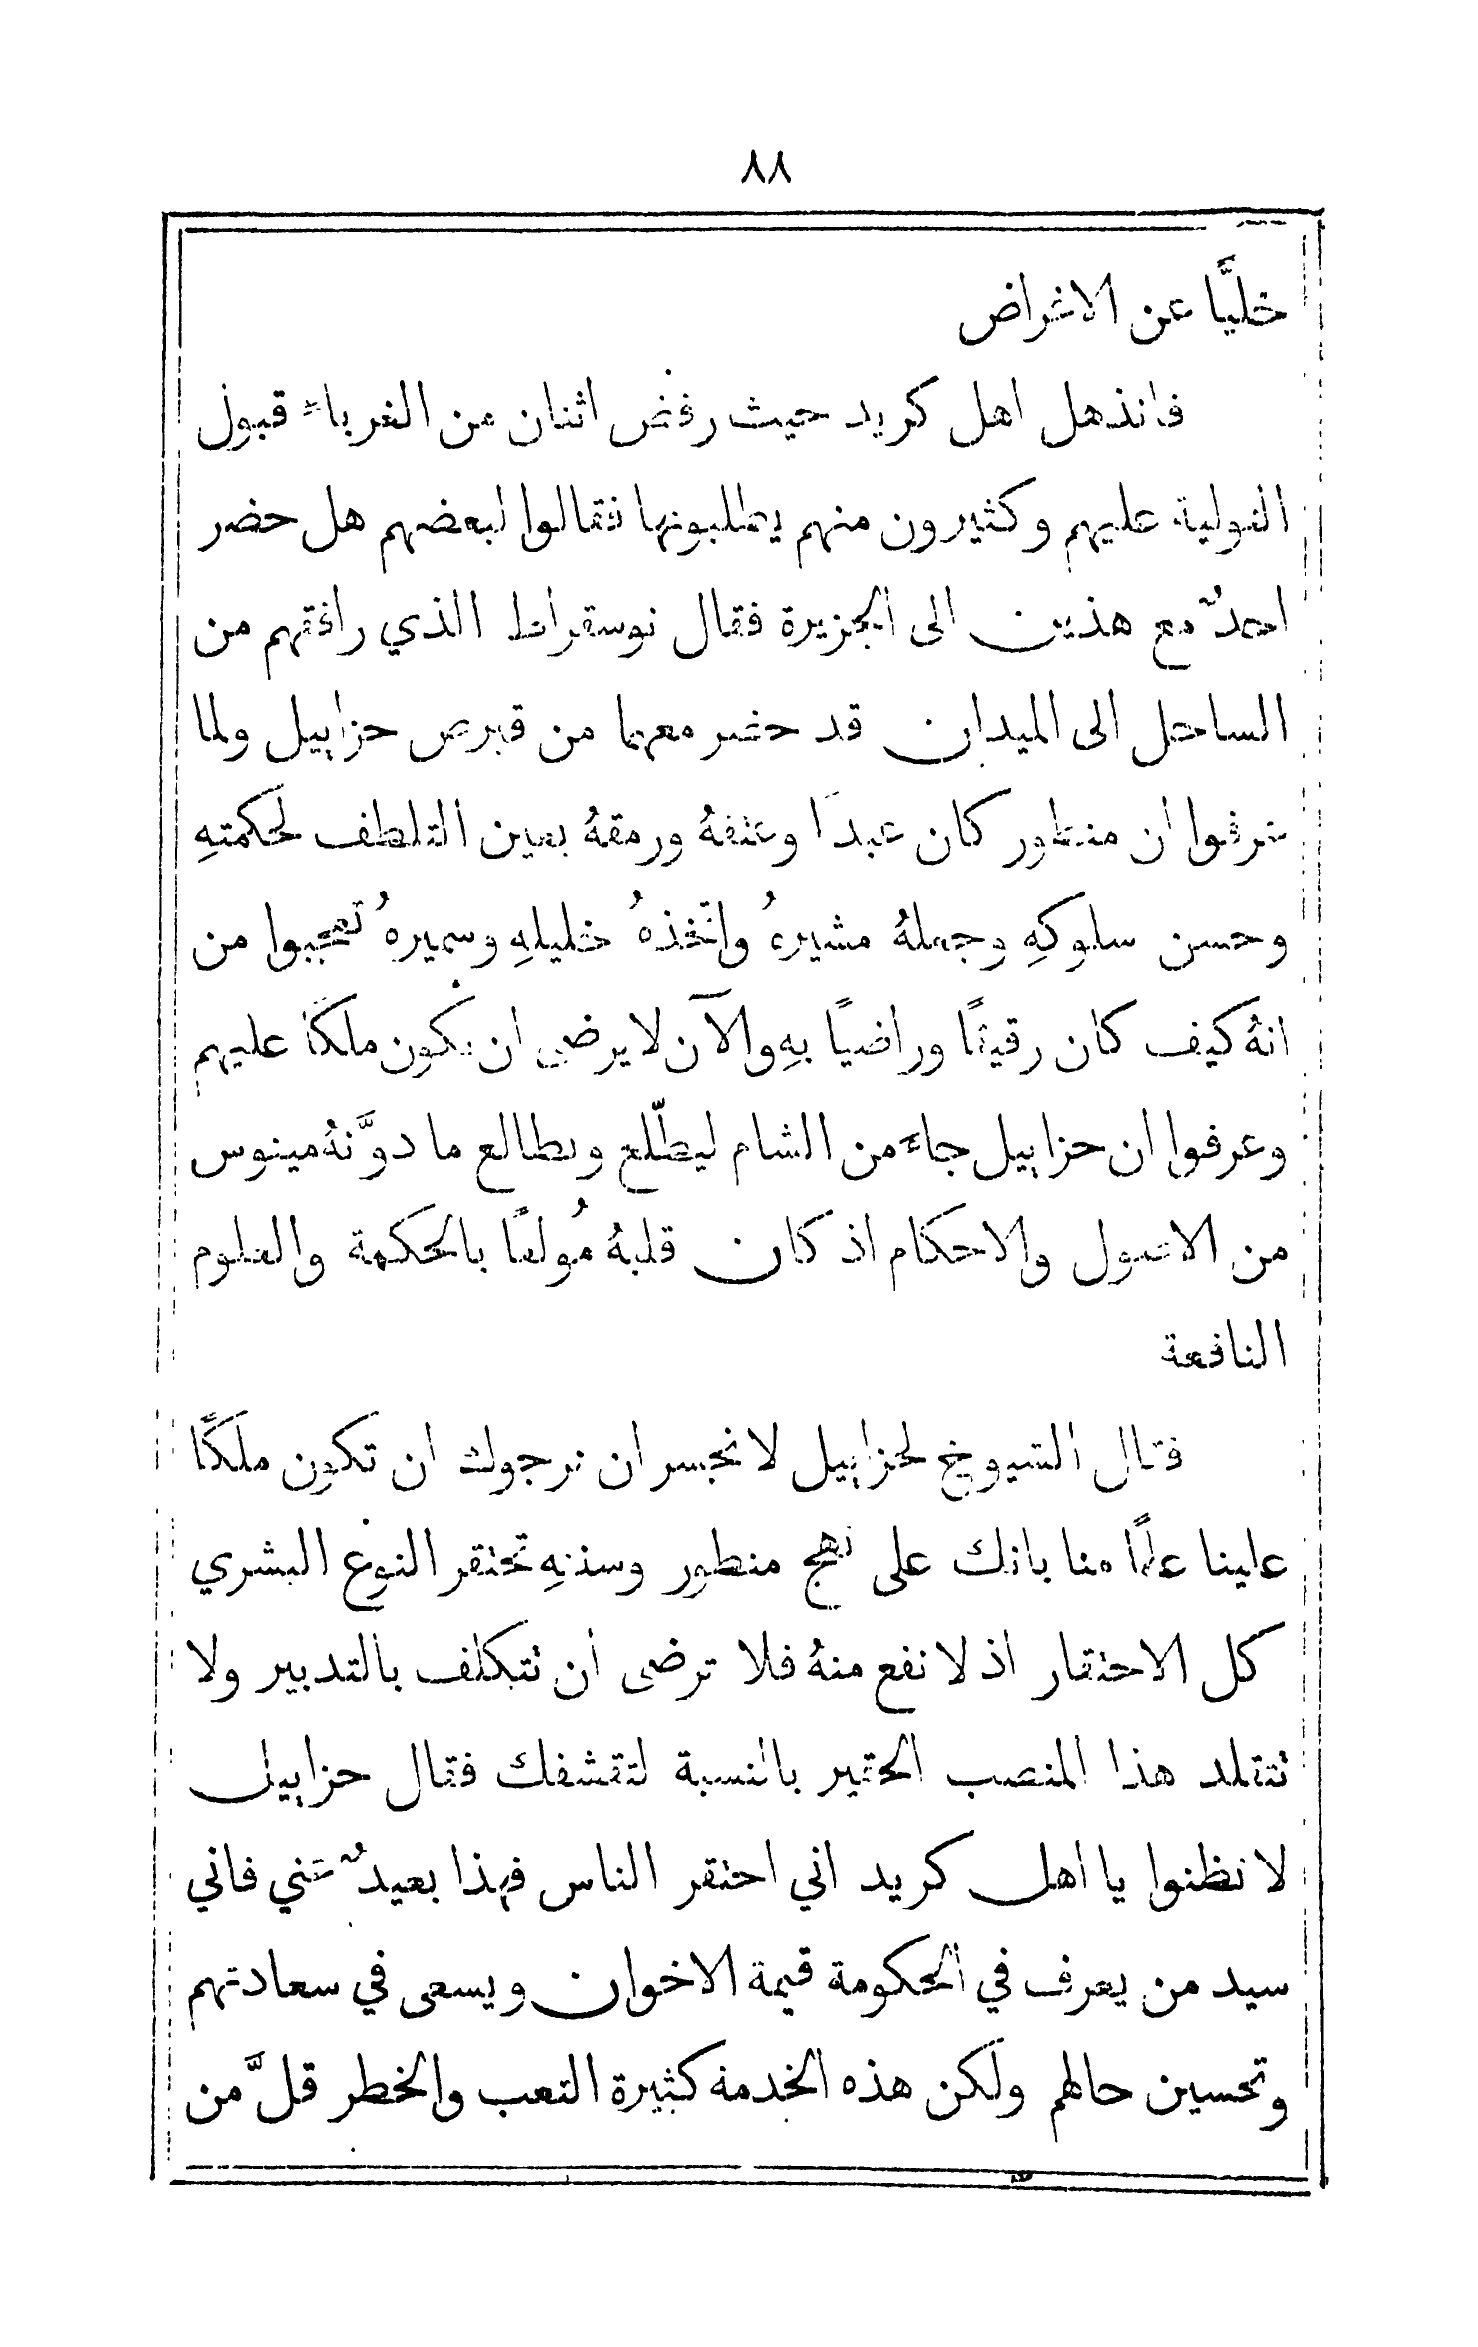 ٨٨
خليًّا عن الاغراض
فانذهل اهل كريد حيث رفض اثنان من الغرباءِ قبول
التولية عليهم وكثيرون منهم يطلبونها فقالوا لبعضهم هل حضر
احدٌ مع هذين الى الجزيرة فقال نوسقراط الذي رافقهم من
الساحل الى الميدان قد حضر معهما من قبرص حزابيل ولما
عرفوا ان منطور كان عبدًا وعتقهُ ورمقهُ بعين التلطف لحكمتهِ
وحسن سلوكهِ وجعلهُ مشيرهُ واتّخذهُ خليلهِ وسميرهُ تعجبوا من
انهُ كيف كان رقيقًا وراضيًا بهِ والآن لا يرضى ان يكون ملكًا عليهم
وعرفوا ان حزابيل جاءَ من الشام ليطّلع ويطالع ما دوَّنهُ مينوس
من الاصول والاحكام اذ كان قلبهُ مُولعًا بالحكمة والعلوم
النافعة
فقال الشيوخ لحزابيل لا نجسر ان نرجوك ان تكون ملكًا
علينا علمًا منا بانك على نهج منطور وسننهِ تحتقر النوع البشري
كل الاحتقار اذ لا نفع منهُ فلا ترضى ان تتكلف بالتدبير ولا
تتقلد هذا المنصب الحقير بالنسبة لتقشفك فقال حزابيل
لا تظنوا يا اهل كريد اني احتقر الناس فهذا بعيدٌ عني فاني
سيد من يعرف في الحكومة قيمة الاخوان ويسعى في سعادتهم
وتحسين حالهم ولكن هذه الخدمة كثيرة التعب والخطر قلَّ من